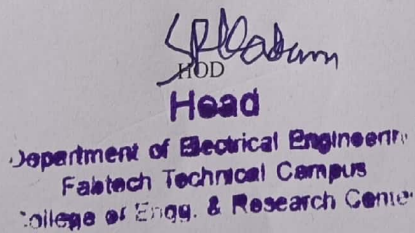 HOD
Head
Department of Electrical Engineering
Fabtech Technical Campus
College of Engg. & Research Center